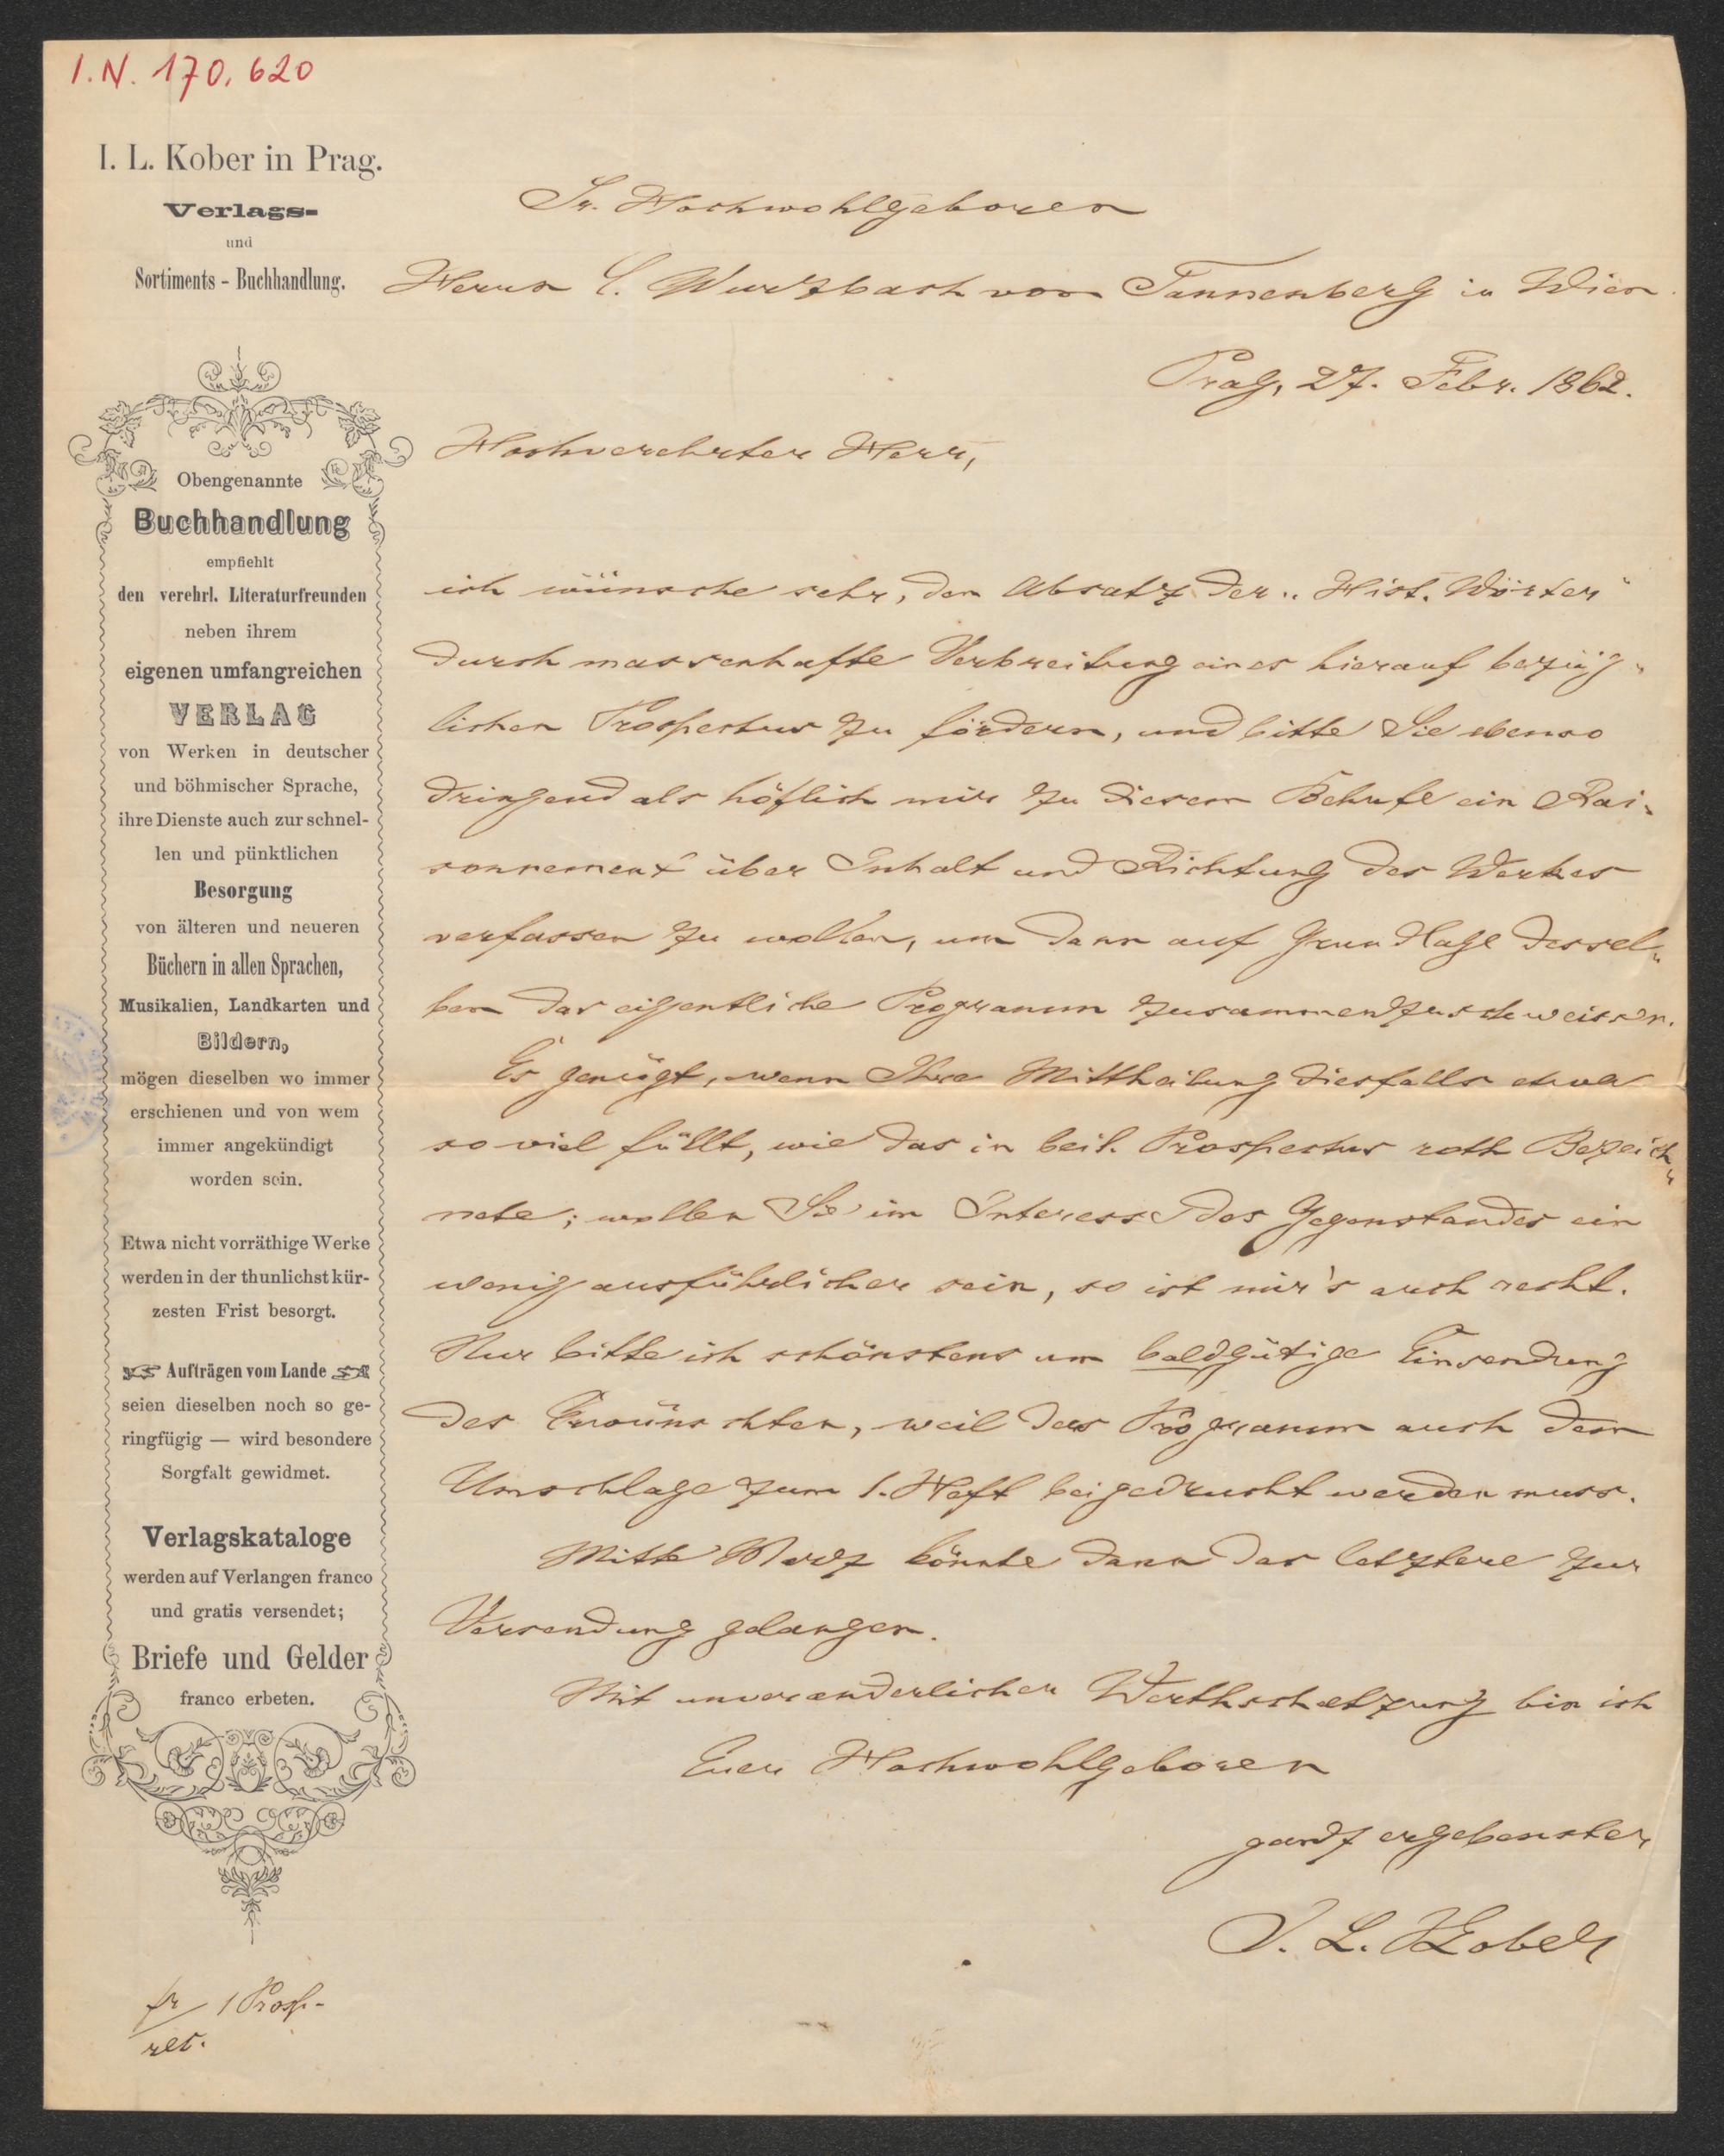 I. N. 170,620
I. L. Kober in Prag.
Verlags-
und
Sortiments - Buchhandlung.
Obengenannte
Buchhandlung
empfiehlt
den verehrl. Literaturfreunden
neben ihrem
eigenen umfangreichen
VERLAG
von Werken in deutscher
und böhmischer Sprache,
ihre Dienste auch zur schnel-
len und pünktlichen
Besorgung
von älteren und neueren
Büchern in allen Sprachen,
Musikalien, Landkarten und
Bildern,
mögen dieselben wo immer
erschienen und von wem
immer angekündigt
worden sein.
Etwa nicht vorräthige Werke
werden in der thunlichst kür-
zesten Frist besorgt.
Aufträgen vom Lande
seien dieselben noch so ge-
ringfügig — wird besondere
Sorgfalt gewidmet.
Verlagskataloge
werden auf Verlangen franco
und gratis versendet;
Briefe und Gelder
franco erbeten.
Sr. Hochwohlgeboren
Herrn C. Wurzbach von Tannenberg in Wien.
Prag, 27. Febr. 1862.
Hochverehrter Herr,
ich wünsche sehr, den Absatz der „Hist. Wörter"
durch massenhafte Verbreitung eines hierauf bezüg-
lichen Prospectus zu fördern, und bitte Sie ebenso
dringend als höflich mir zu diesem Behufe ein Rai-
sonnement über Inhalt und Richtung des Werkes
verfassen zu wollen, um dann auf Grundlage dessel-
ben das eigentliche Programm zusammenzuschweissen.
Es genügt, wenn Ihre Mittheilung diesfalls etwa
so viel füllt, wie das in beil. Prospectus roth Bezeich-
nete; wollen Sie im Interesse des Gegenstandes ein
wenig ausführlicher sein, so ist mir's auch recht.
Nur bitte ich schönstens um baldgütige Einsendung
des Erwünschten, weil das Programm auch dem
Umschlage zum 1. Heft beigedruckt werden muss.
Mitte März könnte dann das letztere zur
Versendung gelangen.
Mit unveränderlicher Werthschätzung bin ich
Euer Hochwohlgeboren
ganz ergebenster
I. L. Kober
1 Prosp.